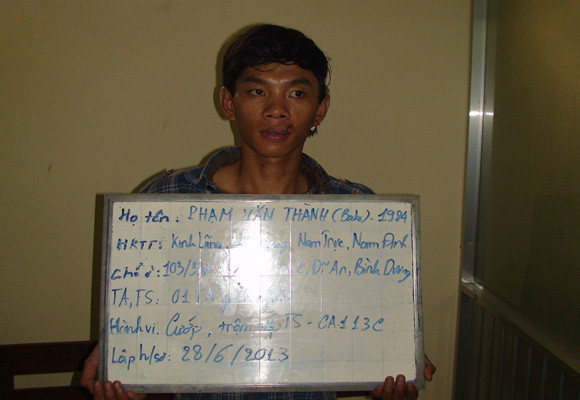 Họ tên: PHẠM VĂN THÀNH (Beo) - 1984
HKTT: Kinh Lũng, Nam Trực, Nam Định
Chỗ ở: 103/3 Dĩ An, Bình Dương
TA, TS: 01
Hành vi: Cướp, trộm TS - CA113C
Lập h/sơ: 28/6/2013